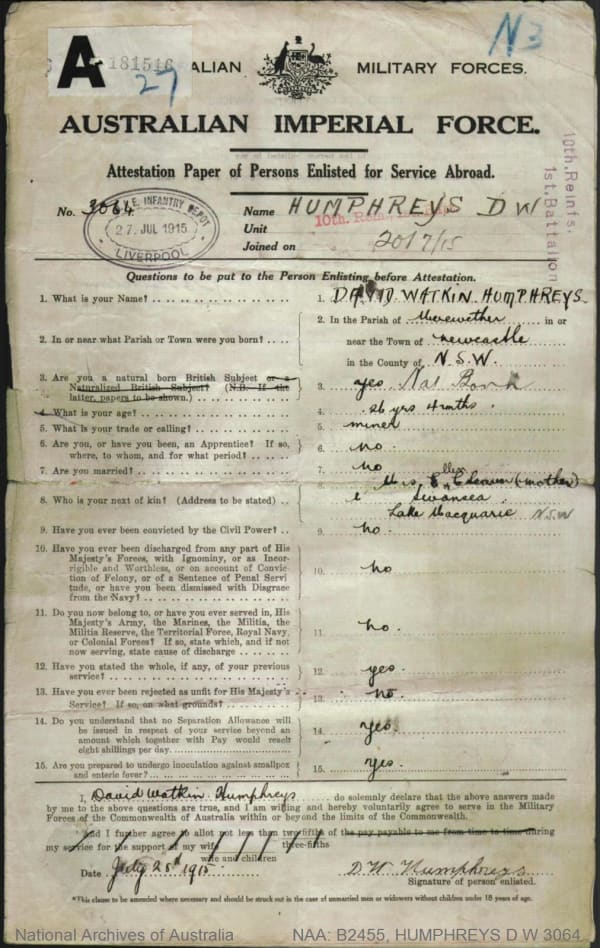 A
181516
27
N3
ALIAN MILITARY FORCES.
AUSTRALIAN IMPERIAL FORCE.
Attestation Paper of Persons Enlisted for Service Abroad.
10th. Reinfs.
1st. Battalion
No. 3064
E. INFANTRY DEPOT
27. JUL 1915
LIVERPOOL
Name HUMPHREYS D W
Unit
10th.
Joined on 20/7/15
Questions to be put to the Person Enlisting before Attestation.
1. What is your Name? 1. DAVID WATKIN HUMPHREYS
2. In or near what Parish or Town were you born? 2. In the Parish of Merewether in or
near the Town of newcastle
in the County of N.S.W.
3. Are you a natural born British Subject or a
Naturalized British Subject? (N.B. If the
latter, papers to be shown.) 3. yes Nat Born
4. What is your age? 4. 26 yrs 4 mths.
5. What is your trade or calling? 5. miner
6. Are you, or have you been, an Apprentice? If so,
where, to whom, and for what period? 6. no
7. Are you married? 7. no
8. Who is your next of kin? (Address to be stated) 8. Mrs Ellen (mother)
Swansea
Lake Macquarie N.S.W
9. Have you ever been convicted by the Civil Power? 9. no.
10. Have you ever been discharged from any part of His
Majesty's Forces, with Ignominy, or as Incor-
rigible and Worthless, or on account of Convic
tion of Felony, or of a Sentence of Penal Servi
tude, or have you been dismissed with Disgrace
from the Navy? 10. no
11. Do you now belong to, or have you ever served in, His
Majesty's Army, the Marines, the Militia, the
Militia Reserve, the Territorial Force, Royal Navy,
or Colonial Forces? If so, state which, and if not
now serving, state cause of discharge 11 no.
12. Have you stated the whole, if any, of your previous
service? 12. yes.
13. Have you ever been rejected as unfit for His Majesty's
Service? If so, on what grounds? 13. no.
14. Do you understand that no Separation Allowance will
be issued in respect of your service beyond an
amount which together with Pay would reach
eight shillings per day. 14. yes.
15. Are you prepared to undergo inoculation against smallpox
and enteric fever? 15. yes.
I, David Watkin Humphreys do solemnly declare that the above answers made
by me to the above questions are true, and I am willing and hereby voluntarily agree to serve in the Military
Forces of the Commonwealth of Australia within or beyond the limits of the Commonwealth.
*And I further agree to allot not less than two-fifths of the pay payable to me from time to time during
three-fifths
my service for the support of my wife
wife and children
Date July 25th 1915. D.W. Humphreys
Signature of person enlisted.
*This clause to be amended where necessary and should be struck out in the case of unmarried men or widowers without children under 18 years of age.
National Archives of Australia NAA: B2455, HUMPHREYS D W 3064